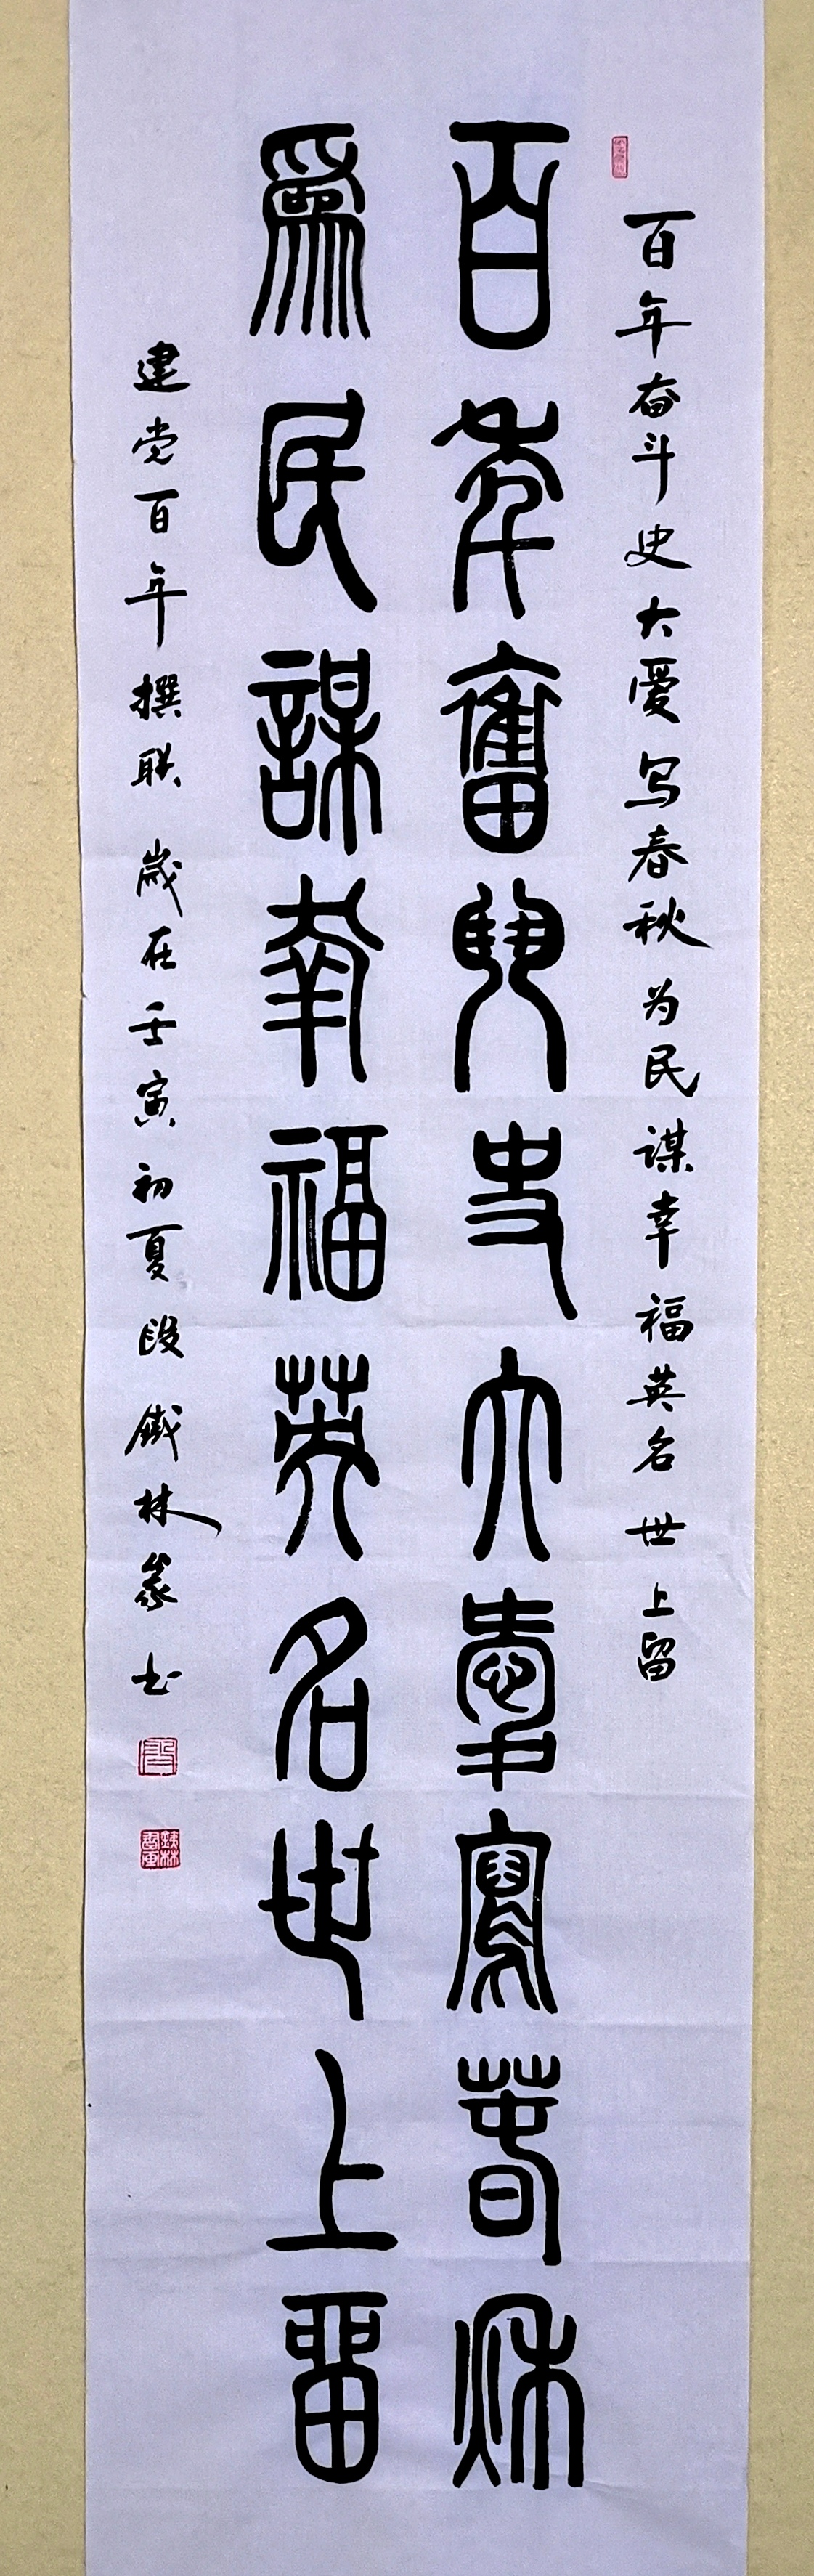 百年奋斗史大爱写春秋为民谋幸福英名世上留
百年奮鬥史大愛寫春秋
為民謀幸福英名世上留
建党百年撰联 岁在壬寅初夏段鐵林篆书